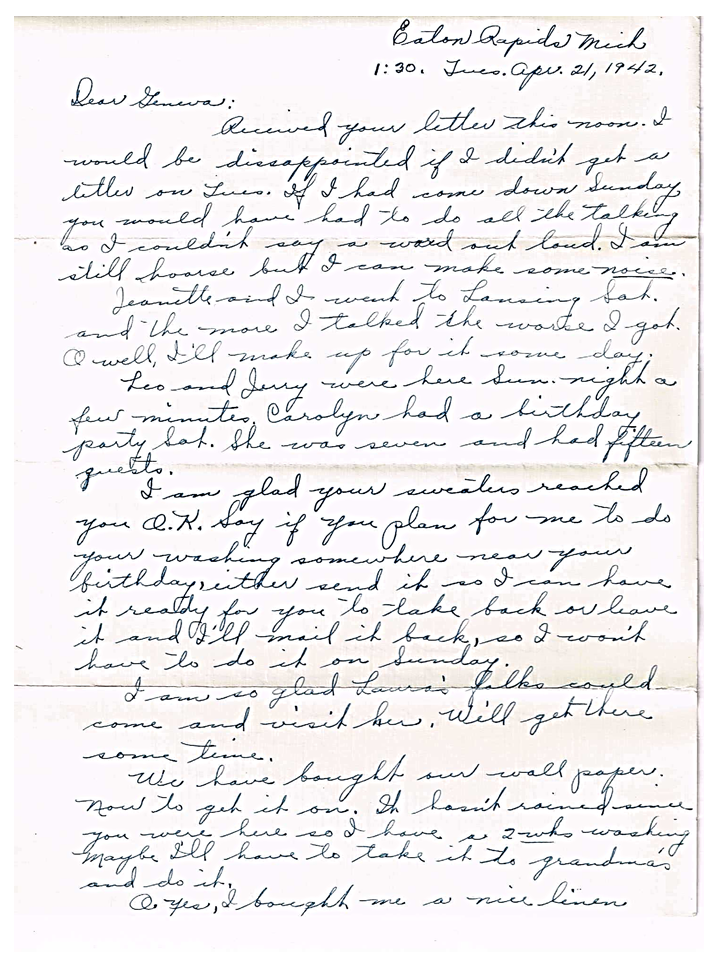 Eaton Rapids Mich
1:30. Tues. Apr. 21, 1942.
Dear Geneva:
Received your letter this noon. I
would be dissappointed if I didn't get a
letter on Tues. If I had come down Sunday
you would have had to do all the talking
as I couldn't say a word out loud. I am
still hoarse but I can make some noise.
Jeanette and I went to Lansing Sat.
and the more I talked the worse I got.
O well, I'll make up for it some day.
Leo and Jerry were here Sun. night a
few minutes. Carolyn had a birthday
party Sat. She was seven and had fifteen
guests.
I am glad your sweaters reached
you O.K. Say if you plan for me to do
your washing somewhere near your
birthday, either send it so I can have
it ready for you to take back or leave
it and I'll mail it back, so I won't
have to do it on Sunday.
I am so glad Laura's folks could
come and visit her. We'll get there
some time.
We have bought our wall paper.
Now to get it on. It hasn't rained since
you were here so I have a 2 wks washing
Maybe I'll have to take it to grandma's
and do it.
O Yes, I bought me a nice linen